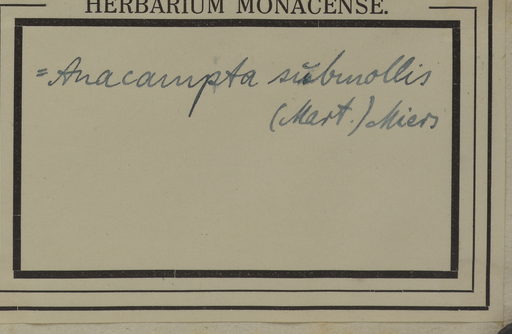 HERBARIUM MONACENSE.
= Anacampta submollis
(Mart.) Miers